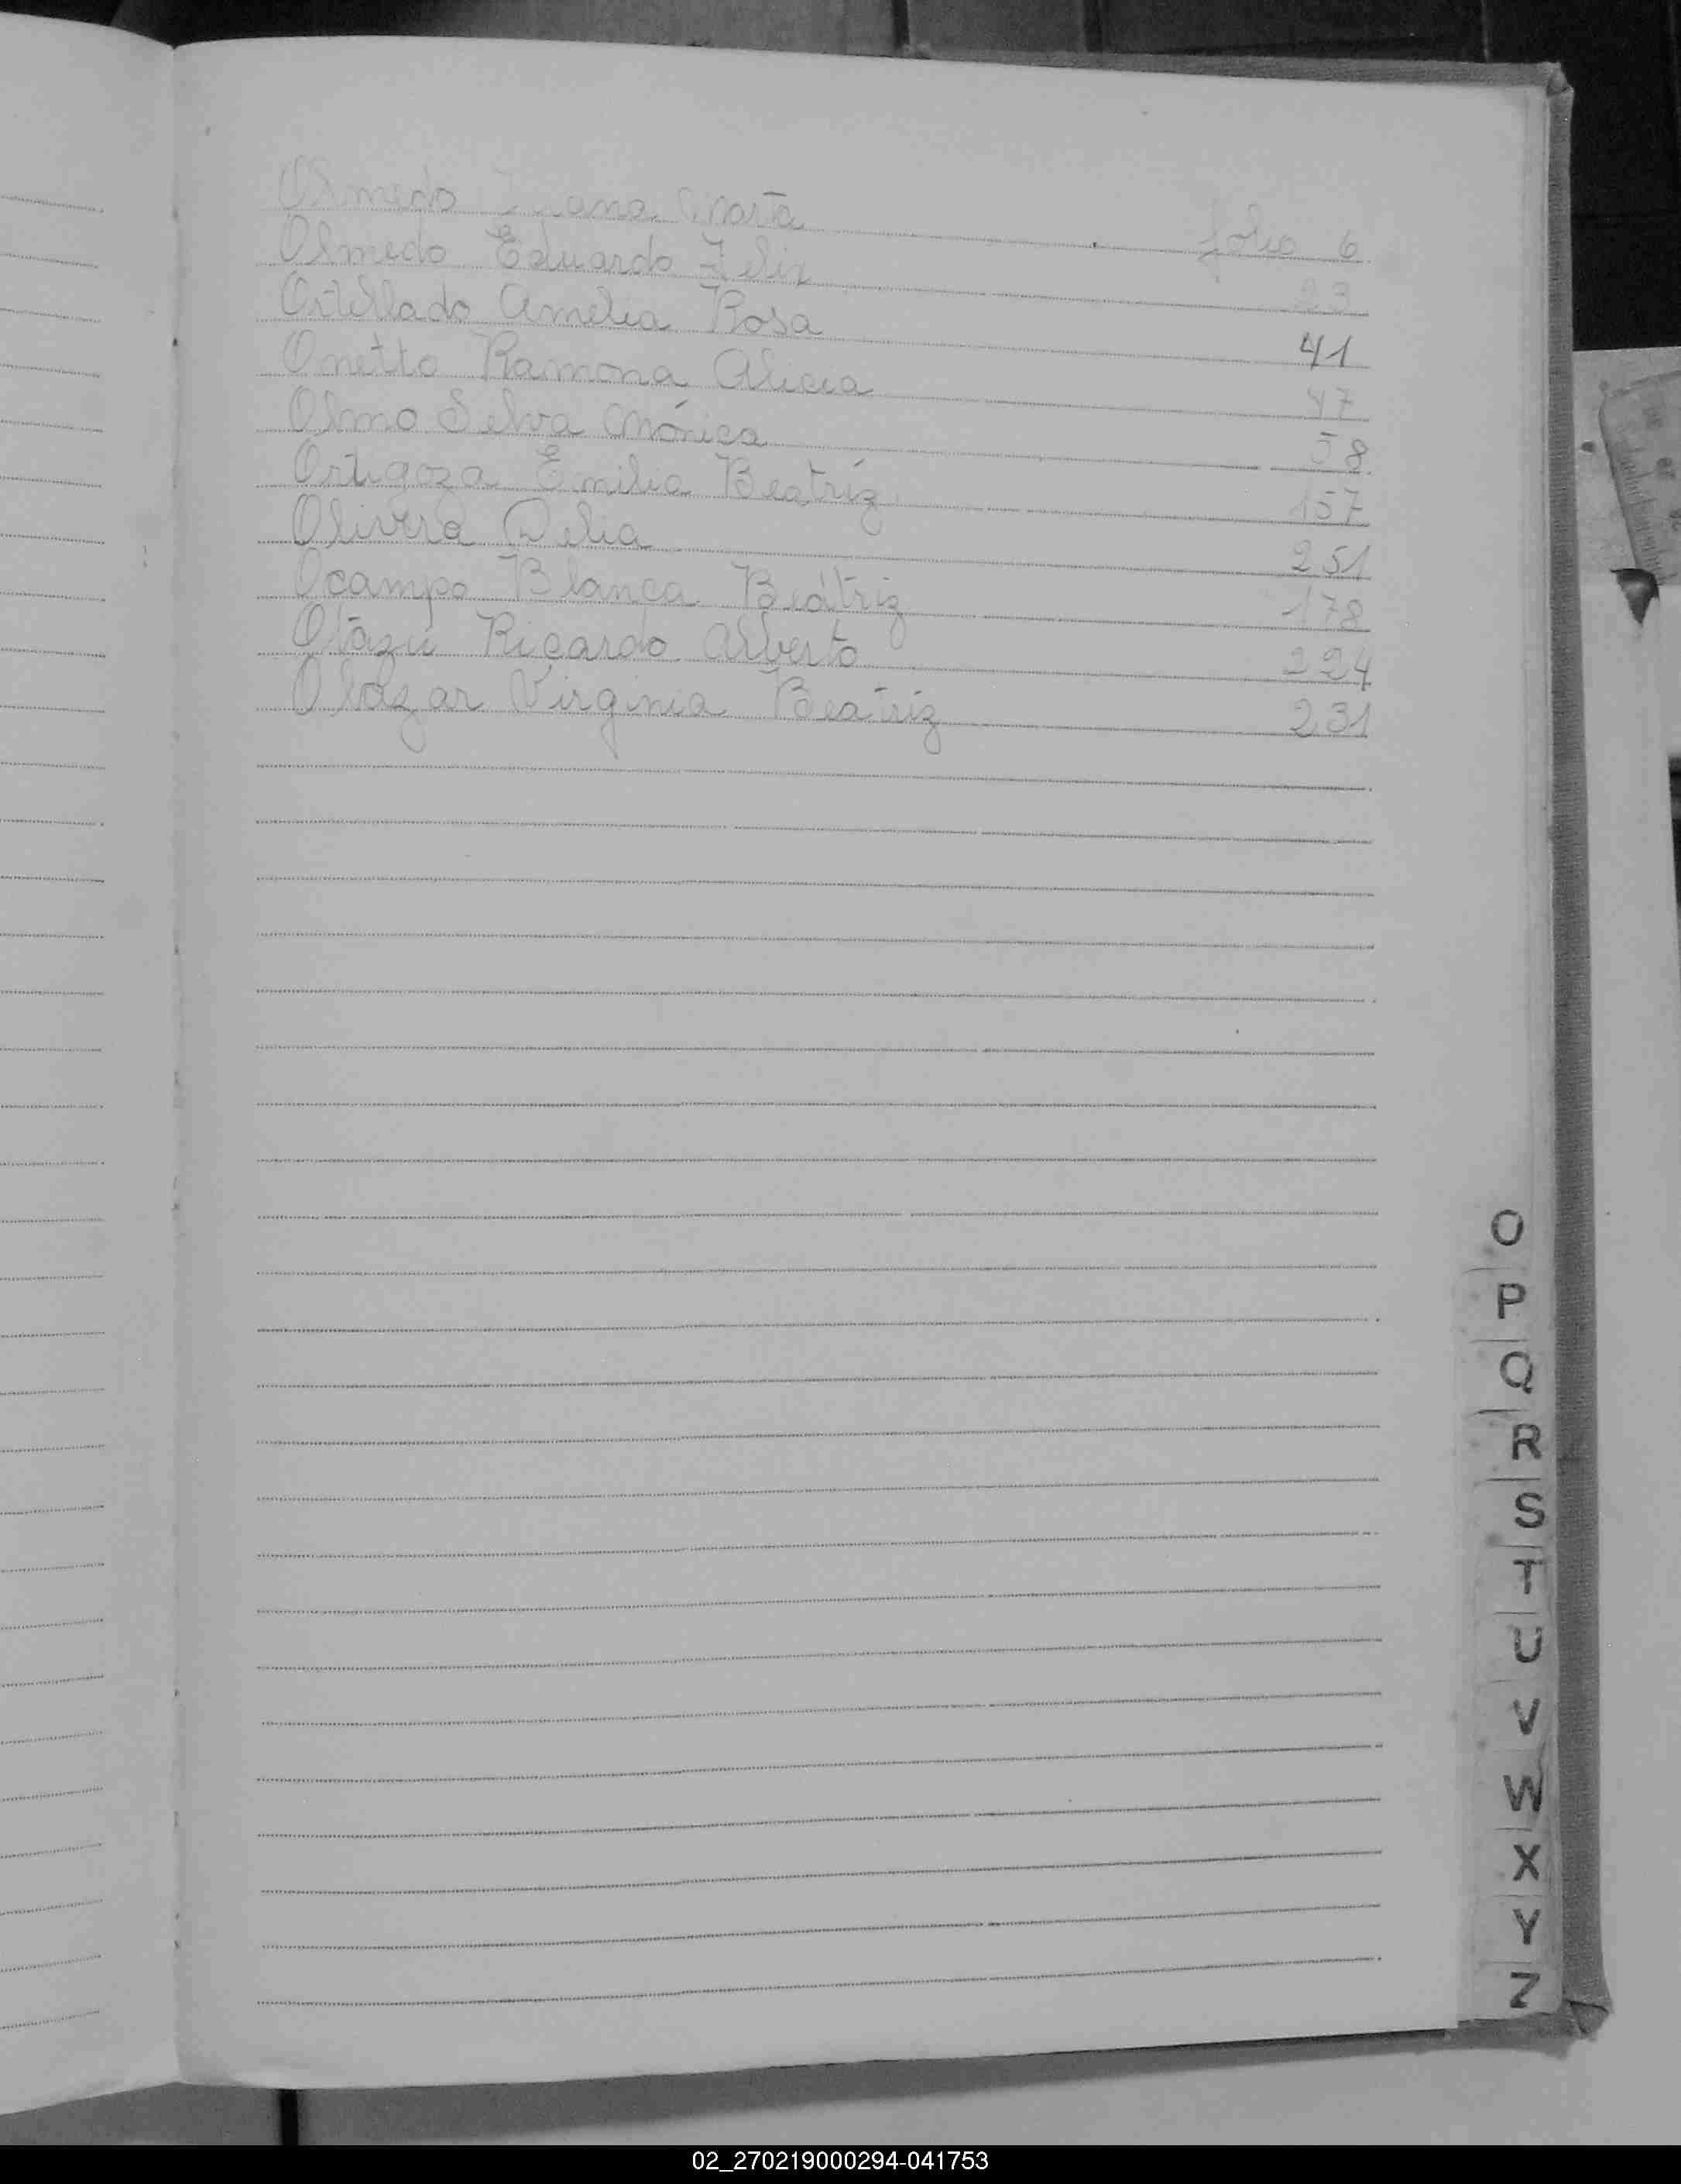 Olmedo Juana Marta folio 6
Olmedo Eduardo Felix 23
Ortellado Amelia Rosa 41
Onetto Ramona Alicia 47
Olmo Selva Mónica 58
Ortigoza Emilia Beatríz 157
Olivera Delia 251
Ocampo Blanca Beatriz 178
Otazú Ricardo Alberto 224
Olazar Virginia Beatriz 231
O
P
Q
R
S
T
U
V
W
X
Y
Z
02_270219000294-041753